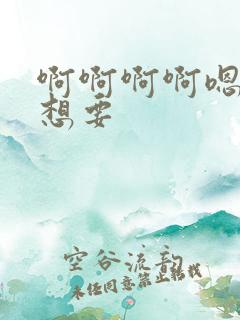 啊啊啊啊嗯
想要
空谷流韵
未经同意禁止转载